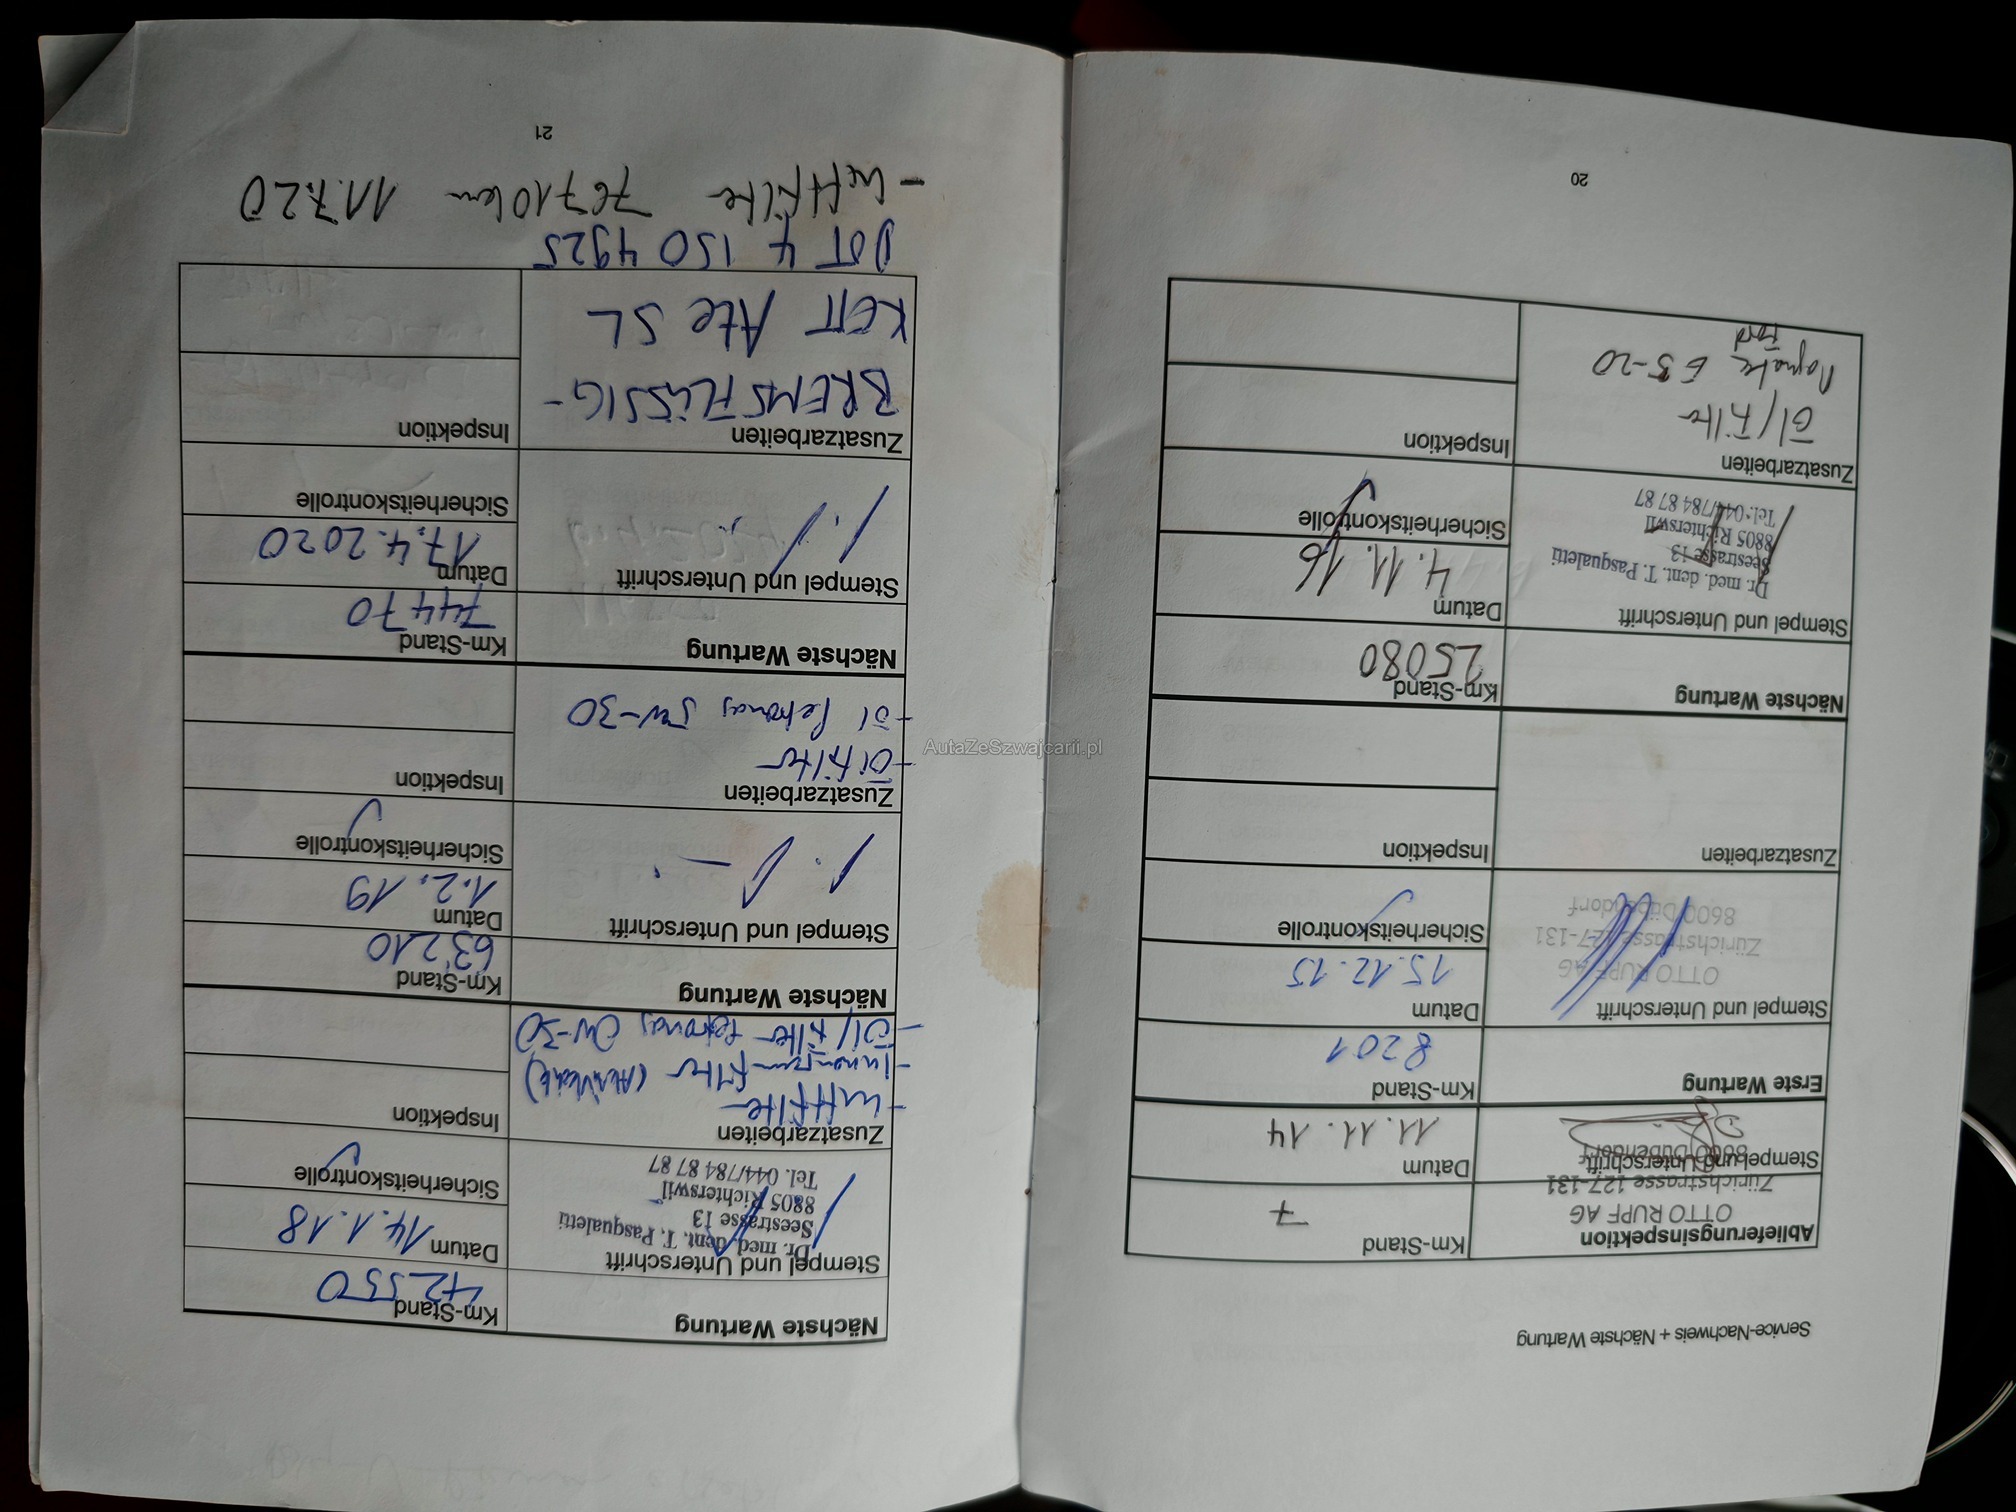 Service-Nachweis + Nächste Wartung
Ablieferungsinspektion
OTTO RUPF AG
Zürichstrasse 127-131
8600 Dübendorf
Stempel und Unterschrift
Km-Stand
7
Datum
11.11.14
Erste Wartung
Km-Stand
8201
Stempel und Unterschrift
OTTO RUPF AG
Zürichstrasse 127-131
8600 Dübendorf
Datum
15.12.15
Sicherheitskontrolle
Zusatzarbeiten
Inspektion
Nächste Wartung
Km-Stand
25080
Stempel und Unterschrift
Dr. med. dent. T. Pasqualetti
Seestrasse 13
8805 Richterswil
Tel. 044/784 87 87
Datum
4.11.16
Sicherheitskontrolle
Zusatzarbeiten
Öl/Filter
5-20
Ford
Inspektion
20
Nächste Wartung
Km-Stand
42550
Stempel und Unterschrift
Dr. med. dent. T. Pasqualetti
Seestrasse 13
8805 Richterswil
Tel. 044/784 87 87
Datum
14.1.18
Sicherheitskontrolle
Zusatzarbeiten
- Luftfilter
- Innenraumfilter
- Öl/Filter Petronas 0W-30
Inspektion
Nächste Wartung
Km-Stand
63'210
Stempel und Unterschrift
Datum
1.2.19
Sicherheitskontrolle
Zusatzarbeiten
- Ölfilter
- Öl Petronas 5W-30
Inspektion
Nächste Wartung
Km-Stand
74470
Stempel und Unterschrift
Datum
17.4.2020
Sicherheitskontrolle
Zusatzarbeiten
BREMSFLÜSSIG-
KEIT Ate SL
DOT 4 ISO 4925
Inspektion
- Luftfilter 76710km 11.7.20
21
AutaZeSzwajcarii.pl